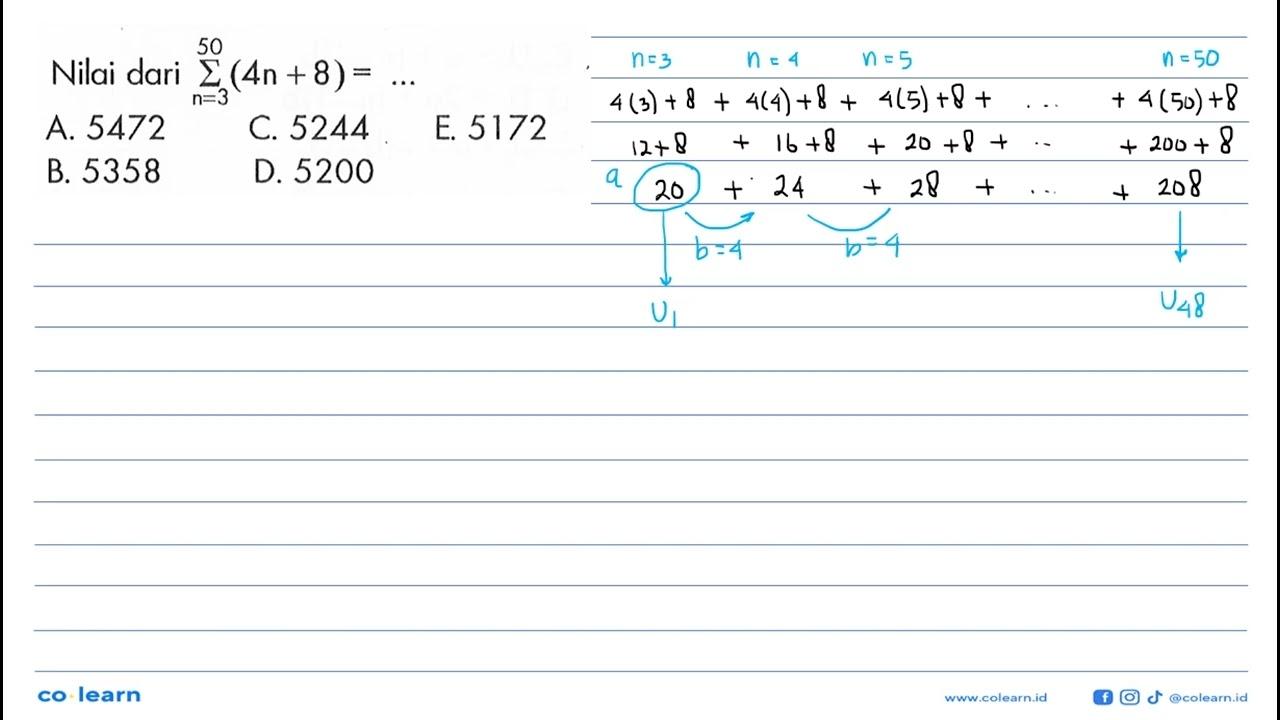 Nilai dari 50 Σ n=3 (4n + 8) = ...
A. 5472 C. 5244 E. 5172
B. 5358 D. 5200
n=3 n=4 n=5 n=50
4(3)+8 + 4(4)+8 + 4(5)+8 + ... + 4(50)+8
12+8 + 16+8 + 20+8 + .. + 200+8
a 20 + 24 + 28 + ... + 208
b=4 b=4
U1 U48
co·learn www.colearn.id @colearn.id